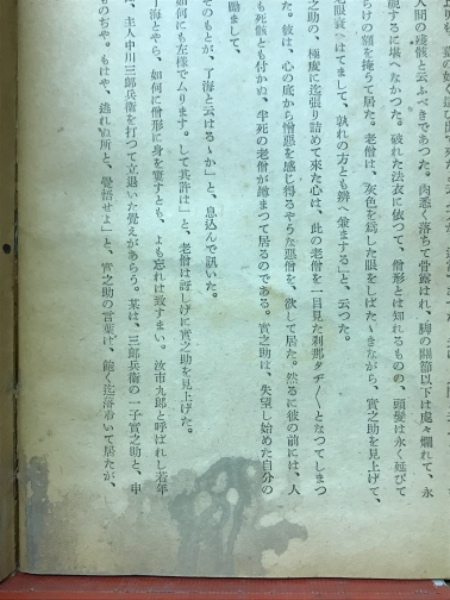 人間の殘骸と云ふべきであつた。肉悉く落ちて骨露はれ、脚の關節以下は處々爛れて、永
視するに堪へなかつた。破れた法衣に依つて、僧形とは知れるものの、頭髮は永く延びて
だらけの額を掩うて居た。老僧は、灰色を爲した眼をしばたゝきながら、實之助を見上げて、
老眼衰へはてまして、孰れの方とも辨へ兼まする」と、云つた。
之助の、極度に迄張り詰めて來た心は、此の老僧を一目見た刹那タヂ〱となつてしまつ
た。彼は、心の底から憎惡を感じ得るやうな惡僧を、欲して居た。然るに彼の前には、人
も死骸とも付かぬ、半死の老僧が蹲まつて居るのである。實之助は、失望し始めた自分の
勵まして、
そのもとが、了海と云はるゝか」と、息込んで訊いた。
如何にも左樣でムります。して其許は」と、老僧は訝しげに實之助を見上げた。
了海とやら、如何に僧形に身を窶すとも、よも忘れは致すまい。汝市九郎と呼ばれし若年
、主人中川三郎兵衞を打つて立退いた覺えがあらう。某は、三郎兵衞の一子實之助と、申
ものぢや。もはや、逃れぬ所と、覺悟せよ」と、實之助の言葉は、飽く迄落着いて居たが、